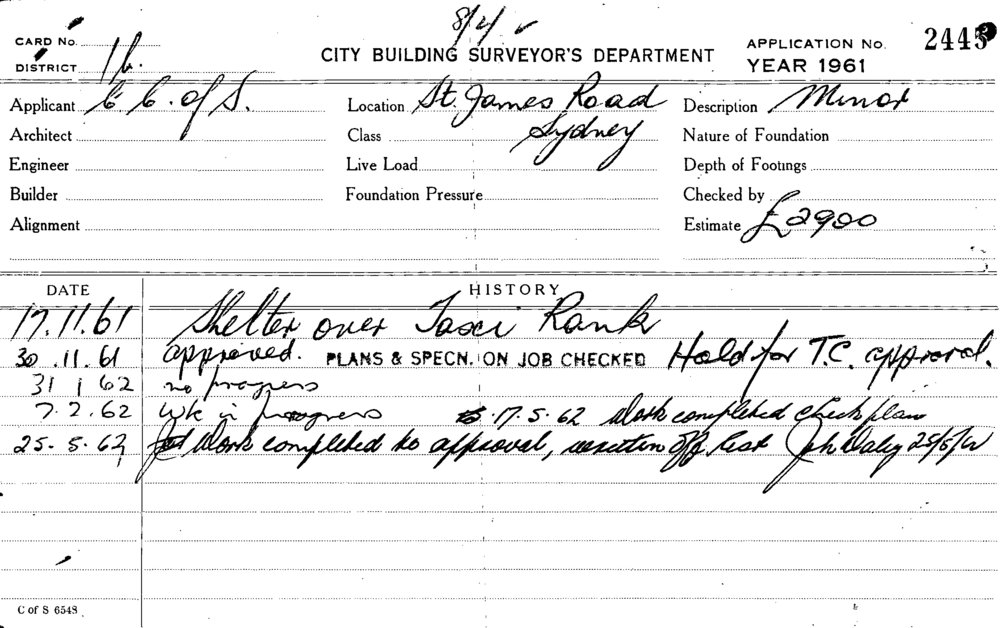 8/2/
CARD No.
DISTRICT 1b.
CITY BUILDING SURVEYOR'S DEPARTMENT
APPLICATION No. 2445
YEAR 1961
Applicant C. C. of S. Location St. James Road Sydney Description Minor
Architect Class Nature of Foundation
Engineer Live Load Depth of Footings
Builder Foundation Pressure Checked by
Alignment Estimate £2900
DATE HISTORY
17.11.61 Shelter over Taxi Rank
30.11.61 approved. PLANS & SPECN. ON JOB CHECKED Hold for T.C. approval.
31 1 62 no progress
7.2.62 wk in progress 17.5.62 Work completed check plan
25.5.62 Work completed to approval, written off list 25/5/62
C of S 6548